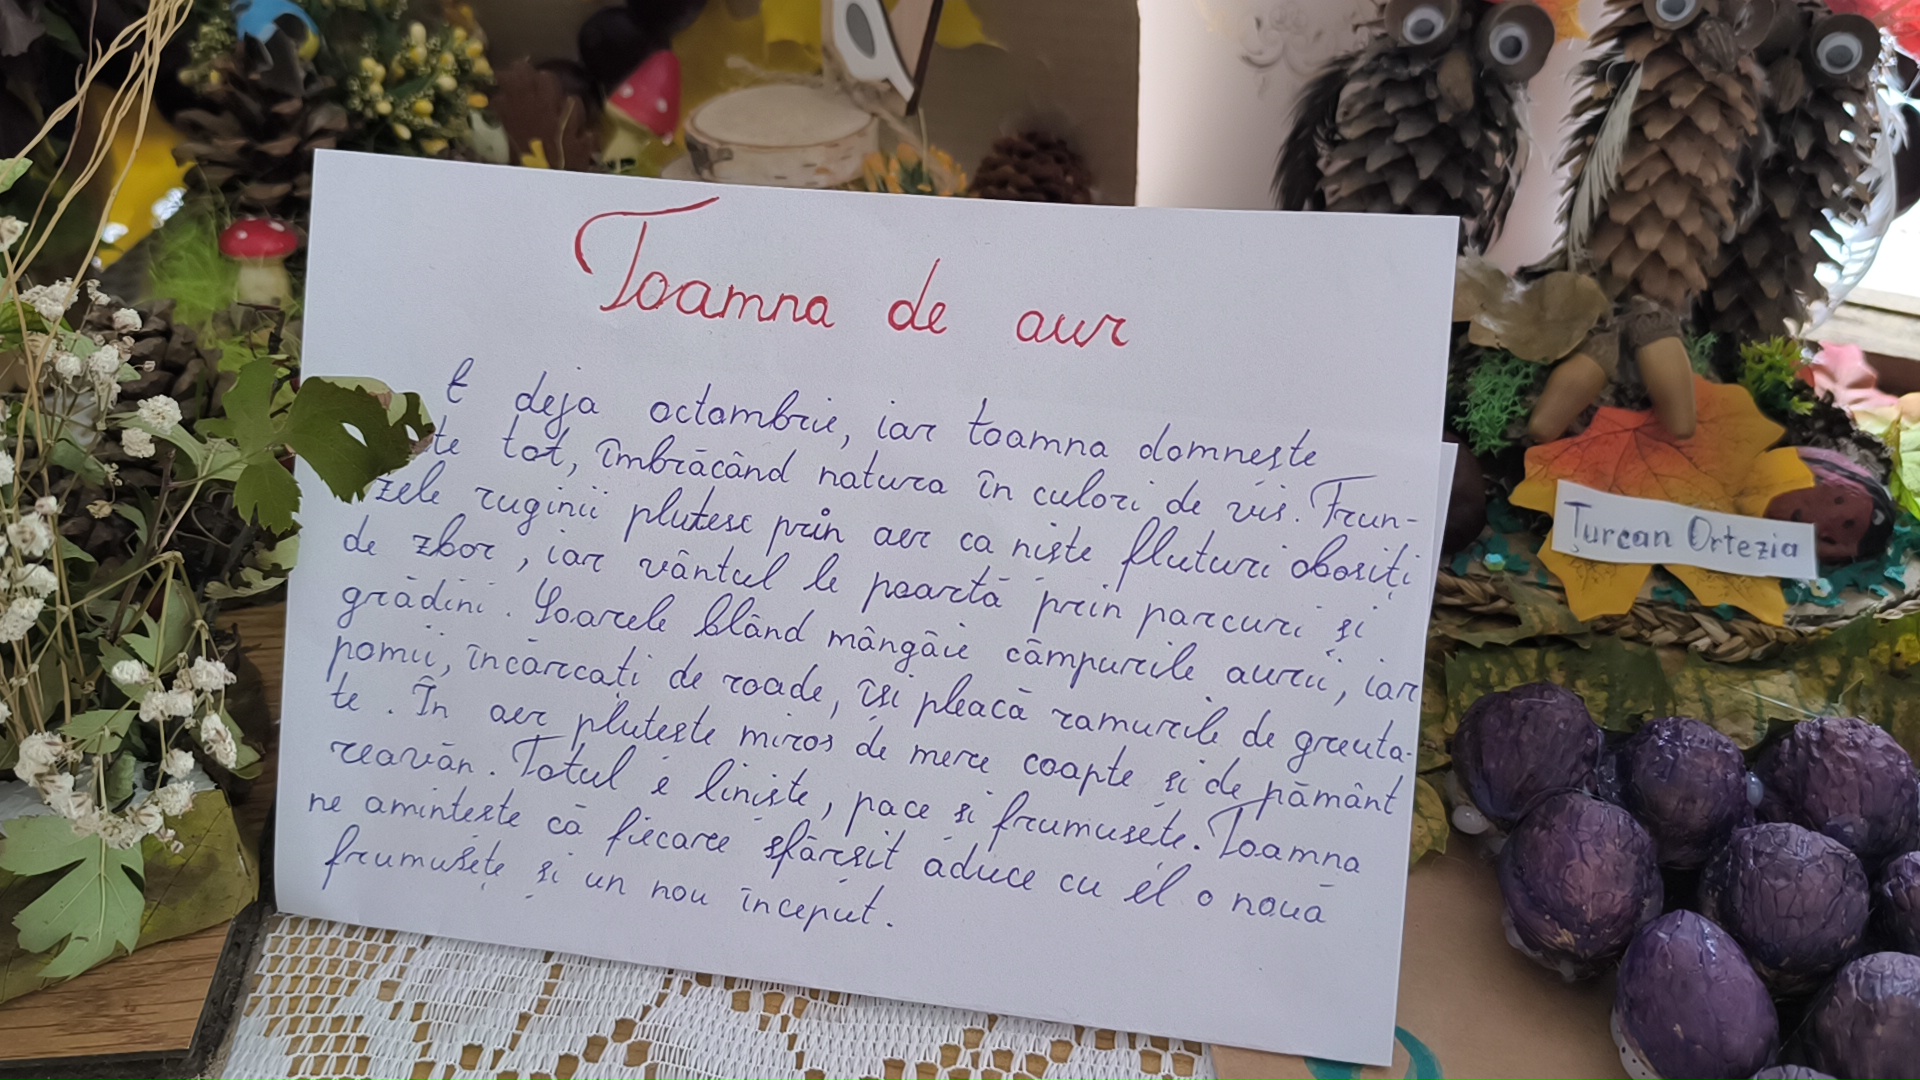 Toamna de aur
E deja octombrie, iar toamna domnește
te tot, îmbrăcând natura în culori de vis. Frun-
zele ruginii plutesc prin aer ca niște fluturi obosiți
de zbor, iar vântul le poartă prin parcuri și
grădini. Soarele blând mângâie câmpurile aurii, iar
pomii, încărcați de roade, își pleacă ramurile de greuta-
te. În aer plutește miros de mere coapte și de pământ
reavăn. Totul e liniște, pace și frumusețe. Toamna
ne amintește că fiecare sfârșit aduce cu el o nouă
frumusețe și un nou început.
Țurcan Ortezia